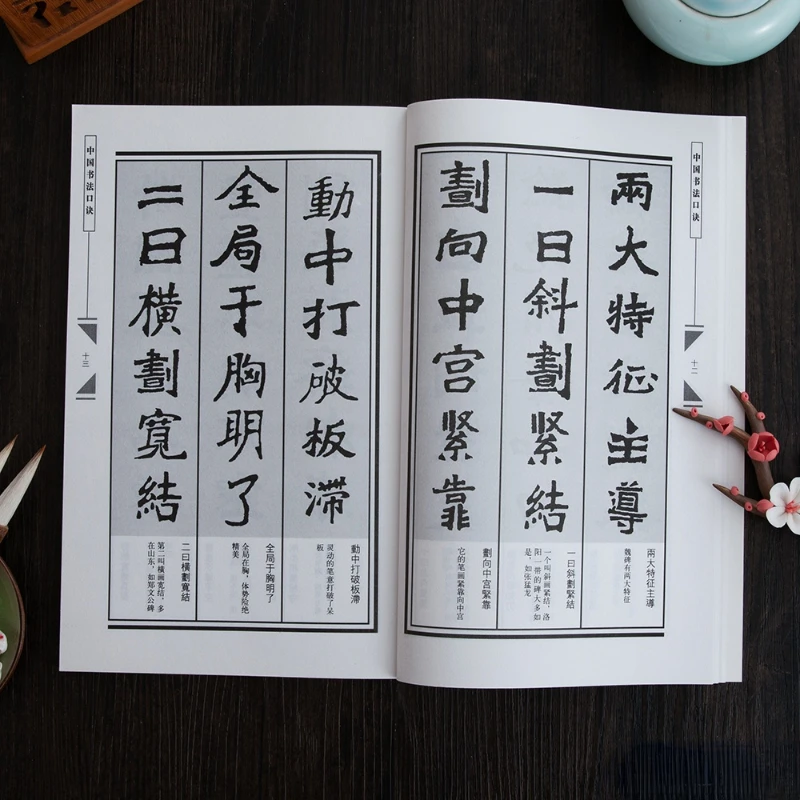 中国书法口诀
十二
兩大特征主導
一曰斜劃緊結
劃向中宫緊靠
兩大特征主導
魏碑有两大特征
一曰斜劃緊結
一个叫斜画紧结，洛
阳一带的碑大多如
是，如张猛龙
劃向中宫緊靠
它的笔画紧靠向中宫
動中打破板滯
全局于胸明了
二曰橫劃寬結
動中打破板滯
灵动的笔意打破了呆
板
全局于胸明了
全局在胸，体势险绝
精美
二曰橫劃寬結
第二叫横画宽结，多
在山东，如郑文公碑
中国书法口诀
十三